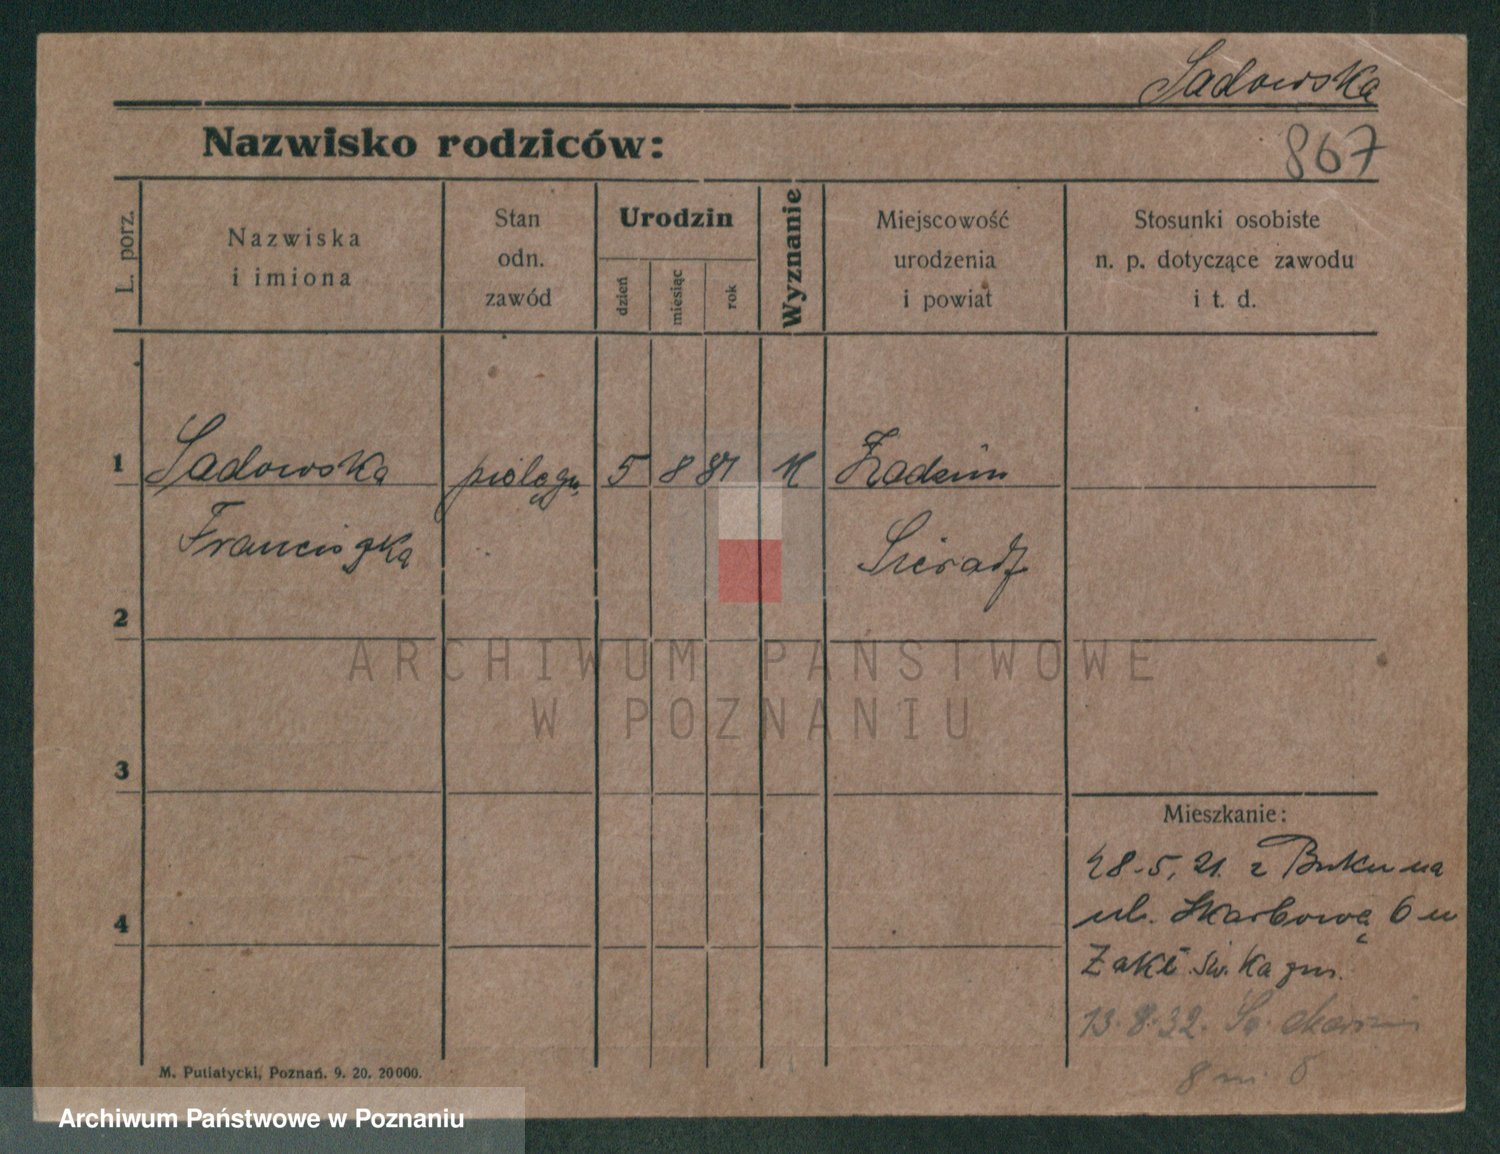 Sadowska
Nazwisko rodziców:
867
L. porz.
Nazwiska
i imiona
Stan
odn.
zawód
Urodzin
dzień
miesiąc
rok
Wyznanie
Miejscowość
urodzenia
i powiat
Stosunki osobiste
n. p. dotyczące zawodu
i t. d.
1
Sadowska
pielęgn.
5
8
81
K
Zadzim
Franciszka
Sieradz
2
3
4
Mieszkanie:
28.5.21. z Buku na
ul. Skarbową 6 u
Zakł. św. Kazm.
13.8.32. Św. Marcin
8 m. 6
M. Putiatycki, Poznań. 9. 20. 20000.
ARCHIWUM PAŃSTWOWE
W POZNANIU
Archiwum Państwowe w Poznaniu